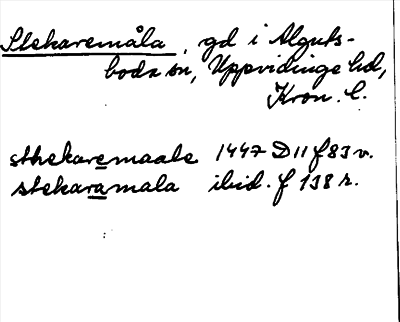 Stekaremåla, gd i Alguts-
boda sn, Uppvidinge hd,
Kron. l.
sthekaremaale 1447 D 11 f 83 v.
stekaramala ibid. f 138 r.